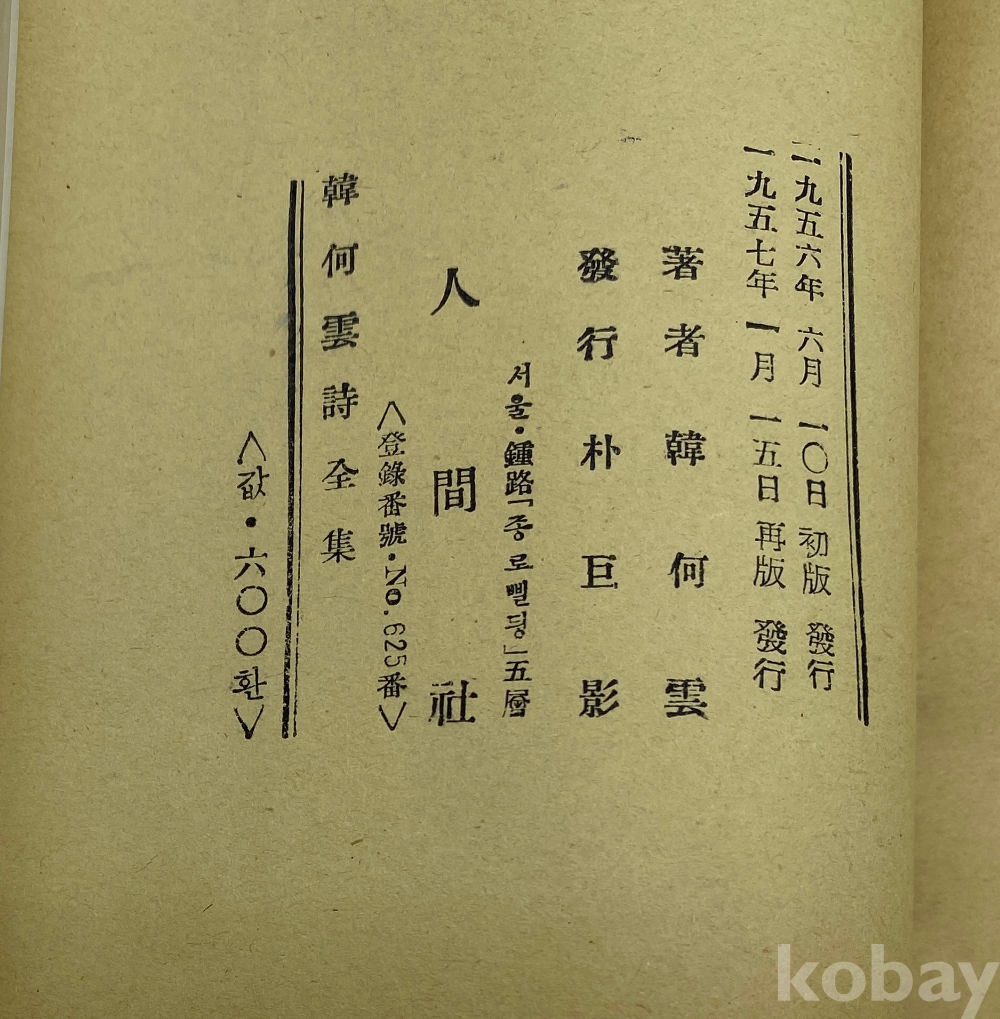 一九五六年 六月 一〇日 初版 發行
一九五七年 一月 一五日 再版 發行
著者 韓何雲
發行 朴巨影
서울・鍾路「종로삘딍」五層
人間社
〈登錄番號・No.625番〉
韓何雲詩全集
〈값・六〇〇환〉
kobay